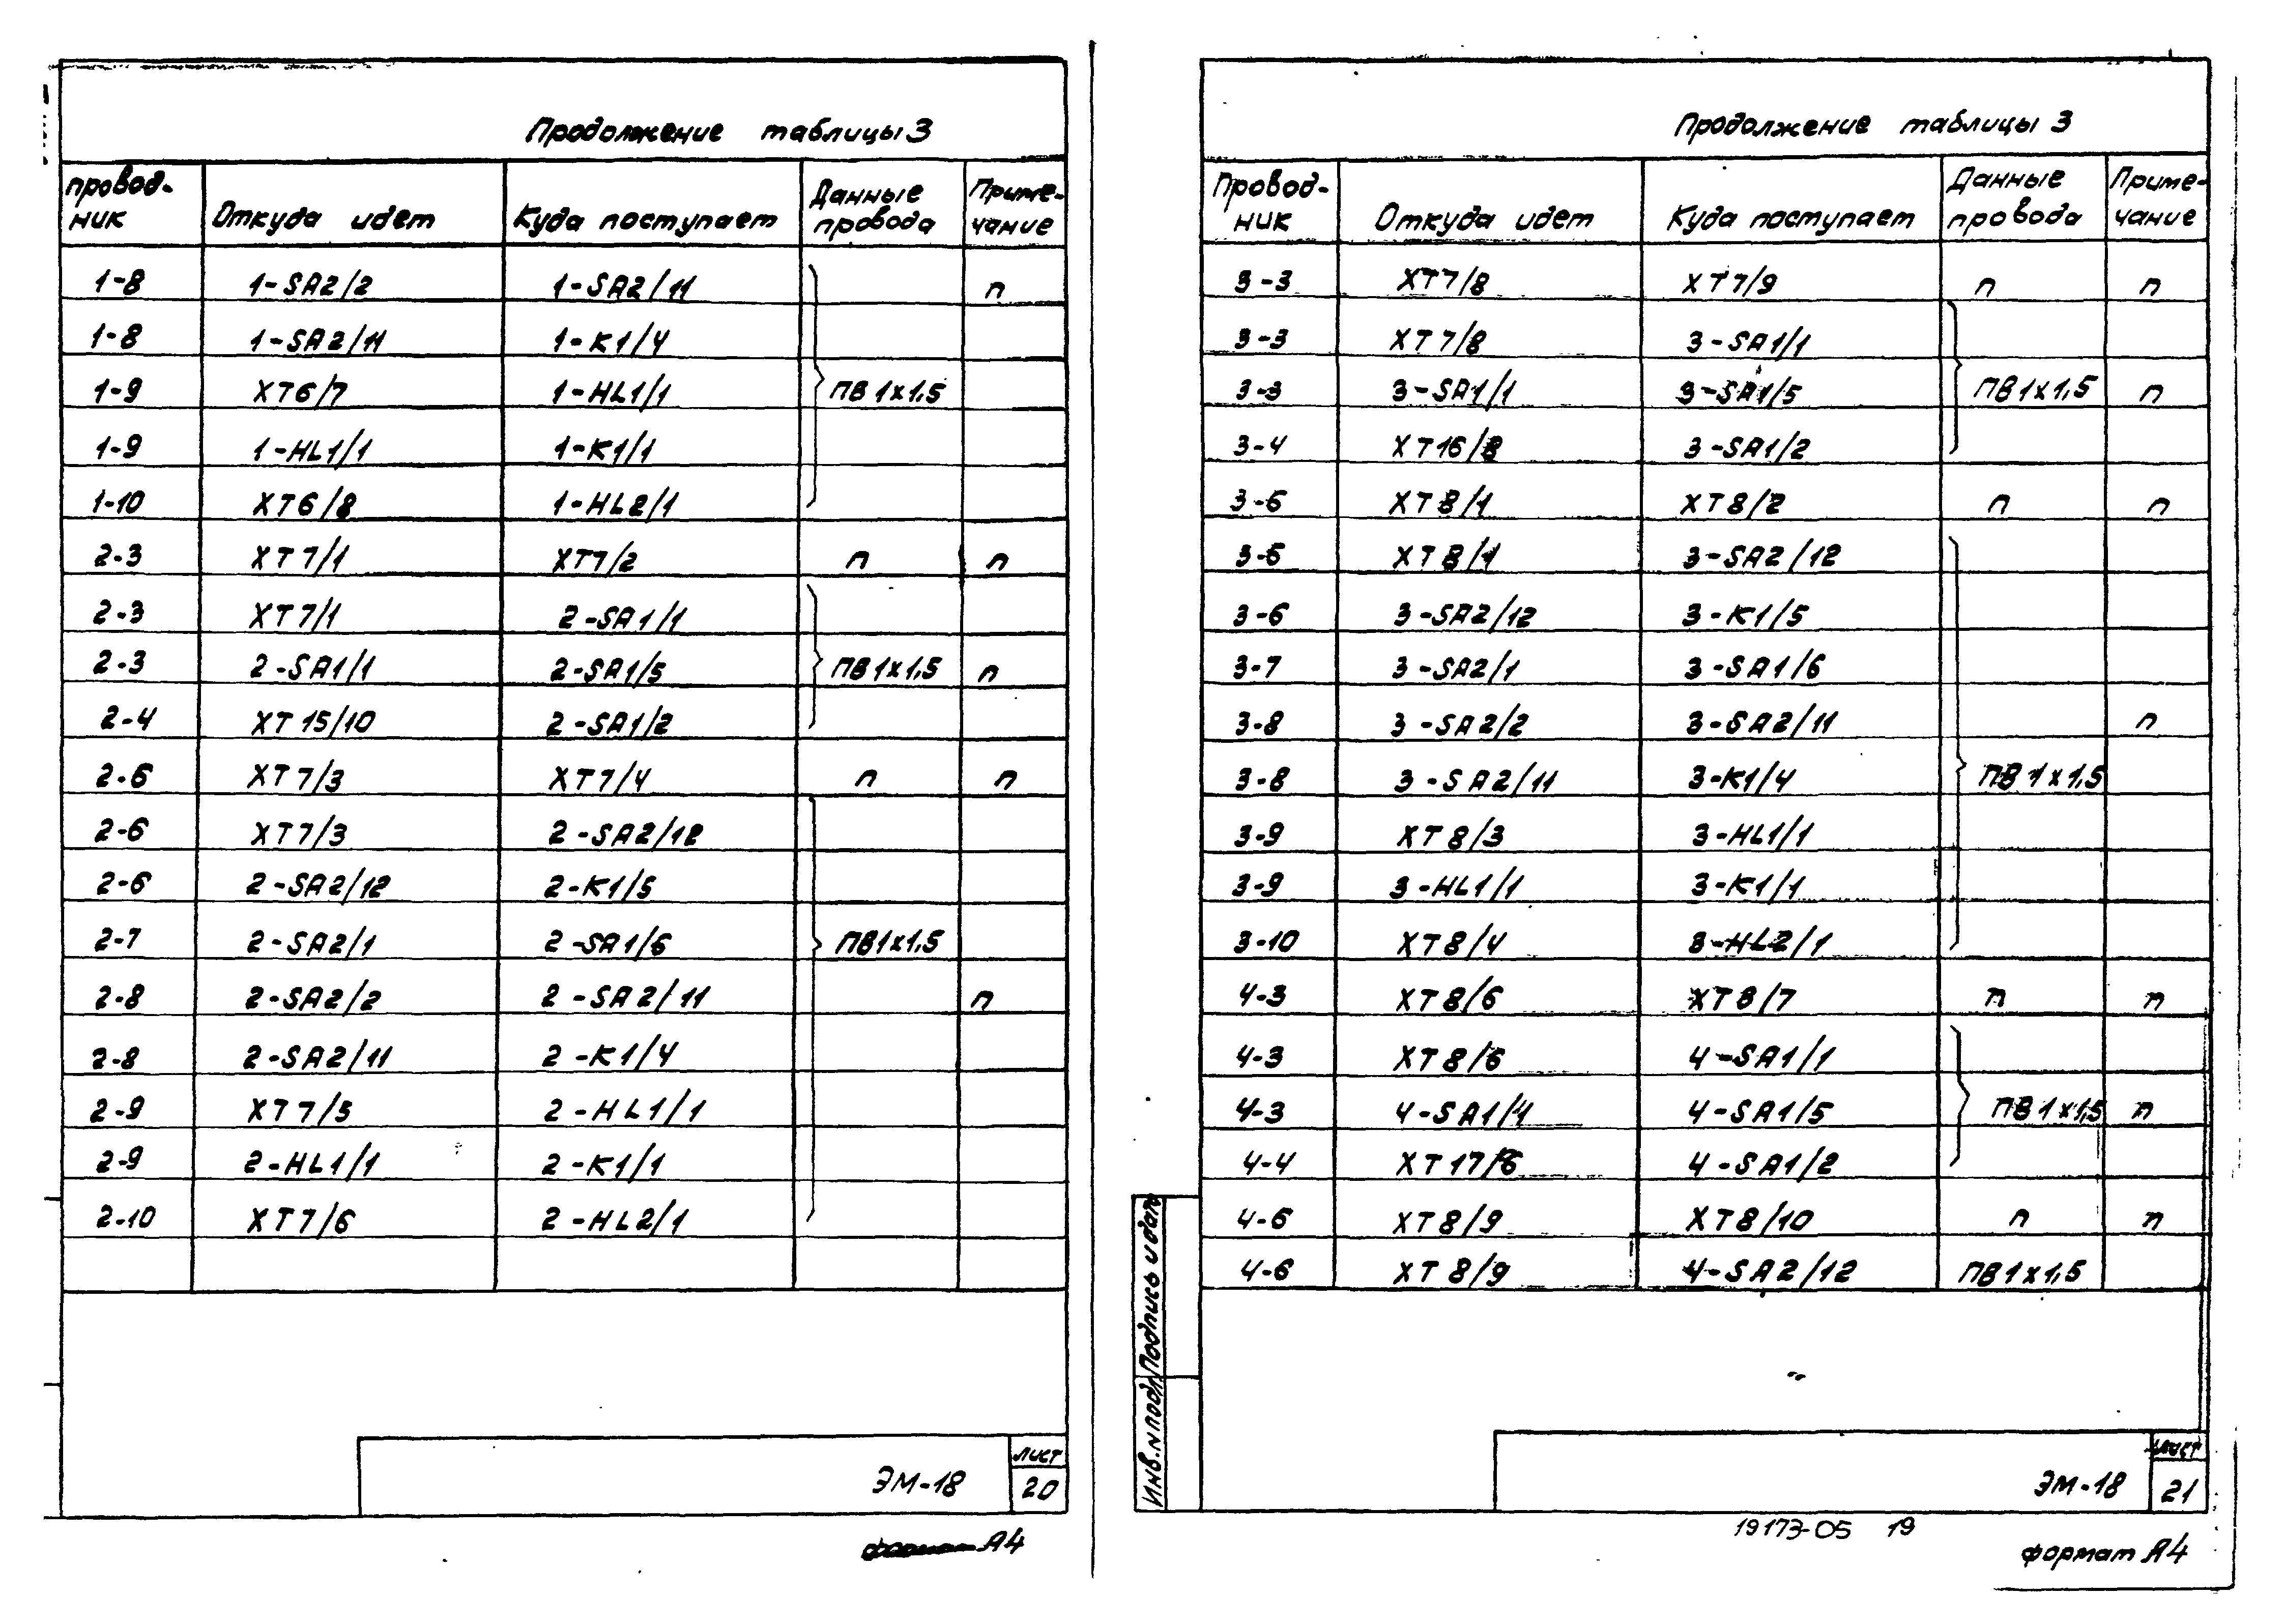 Продолжение таблицы 3
провод-ник Откуда идет Куда поступает Данные провода Приме-чание
1-8 1-SA2/2 1-SA2/11 п
1-8 1-SA2/11 1-K1/4
1-9 XT6/7 1-HL1/1 ПВ1х1,5
1-9 1-HL1/1 1-K1/1
1-10 XT6/8 1-HL2/1
2-3 XT7/1 XT7/2 п п
2-3 XT7/1 2-SA1/1
2-3 2-SA1/1 2-SA1/5 ПВ1х1,5 п
2-4 XT15/10 2-SA1/2
2-6 XT7/3 XT7/4 п п
2-6 XT7/3 2-SA2/12
2-6 2-SA2/12 2-K1/5
2-7 2-SA2/1 2-SA1/6 ПВ1х1,5
2-8 2-SA2/2 2-SA2/11 п
2-8 2-SA2/11 2-K1/4
2-9 XT7/5 2-HL1/1
2-9 2-HL1/1 2-K1/1
2-10 XT7/6 2-HL2/1
ЭМ-18
лист
20
формат А4
Продолжение таблицы 3
Провод-ник Откуда идет Куда поступает Данные провода Приме-чание
3-3 XT7/8 XT7/9 п п
3-3 XT7/8 3-SA1/1
3-3 3-SA1/1 3-SA1/5 ПВ1х1,5 п
3-4 XT16/8 3-SA1/2
3-6 XT8/1 XT8/2 п п
3-6 XT8/1 3-SA2/12
3-6 3-SA2/12 3-K1/5
3-7 3-SA2/1 3-SA1/6
3-8 3-SA2/2 3-SA2/11 п
3-8 3-SA2/11 3-K1/4 ПВ1х1,5
3-9 XT8/3 3-HL1/1
3-9 3-HL1/1 3-K1/1
3-10 XT8/4 3-HL2/1
4-3 XT8/6 XT8/7 п п
4-3 XT8/6 4-SA1/1
4-3 4-SA1/1 4-SA1/5 ПВ1х1,5 п
4-4 XT17/6 4-SA1/2
4-6 XT8/9 XT8/10 п п
4-6 XT8/9 4-SA2/12 ПВ1х1,5
Инв.N подл. Подпись и дата
ЭМ-18
лист
21
19173-05 19
формат А4